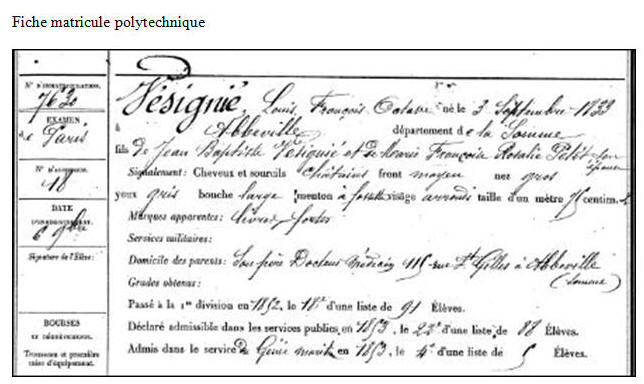 Fiche matricule polytechnique
N° D'IMMATRICULATION.
7630
EXAMEN
de Paris
18
DATE
6 9bre
Signature de l'Élève:
BOURSES
Trousseau et première
mise d'équipement.
Vésignié, Louis François Octave né le 3 Septembre 1833
à Abbeville département de la Somme
fils de Jean Baptiste Vésignié et de Marie Françoise Rosalie Petit son épouse
Signalement: Cheveux et sourcils châtains front moyen nez gros
yeux gris bouche large menton à fossette visage arrondi taille d'un mètre 75 centim.
Marques apparentes: lèvres fortes
Services militaires:
Domicile des parents: Son père Docteur Médecin 115 rue St Gilles à Abbeville
(Somme)
Grades obtenus:
Passé à la 1re division en 1852, le 18e d'une liste de 91 Élèves.
Déclaré admissible dans les services publics en 1853, le 22e d'une liste de 88 Élèves.
Admis dans le service du Génie marit. en 1853, le 4e d'une liste de 5 Élèves.